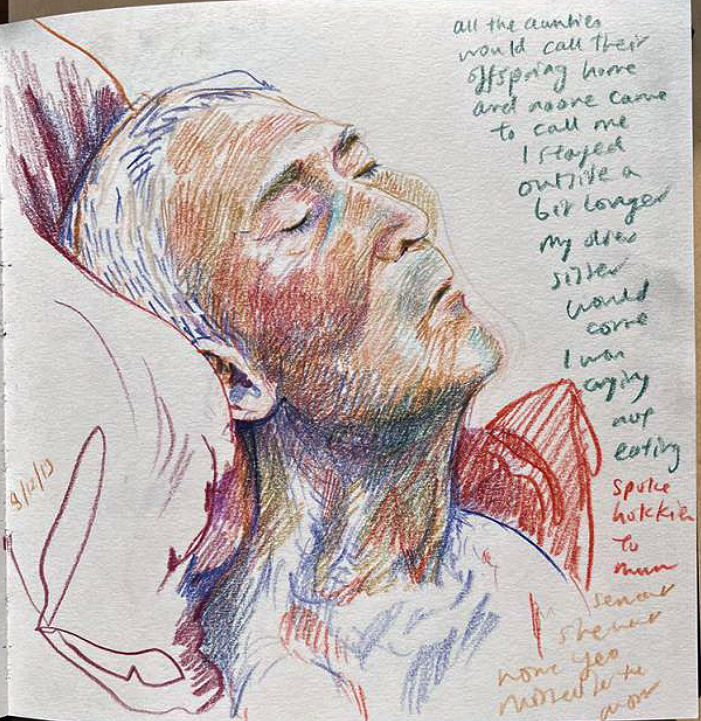 all the aunties
would call their
offspring home
and noone came
to call me
I stayed
outside a
bit longer
my older
sister
would
come
I was
crying
not
eating
spoke
hokkien
to
mum
none
to the
9/12/19